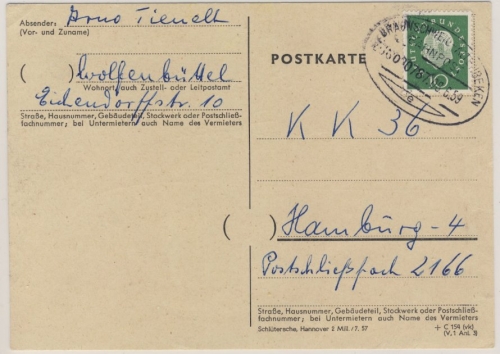 Absender: Arno Tienelt
(Vor- und Zuname)
( ) Wolfenbüttel
Wohnort, auch Zustell- oder Leitpostamt
Eichendorffstr. 10
Straße, Hausnummer, Gebäudeteil, Stockwerk oder Postschließ-
fachnummer; bei Untermietern auch Name des Vermieters
POSTKARTE
BRAUNSCHWEIG
BUNDESPOST
10
K K 36
( ) Hamburg-4
Postschließfach 2166
Straße, Hausnummer, Gebäudeteil, Stockwerk oder Postschließ-
fachnummer; bei Untermietern auch Name des Vermieters
Schlütersche, Hannover 2 Mill. /7. 57
+ C 154 (vk)
(V, 1 Anl. 2)